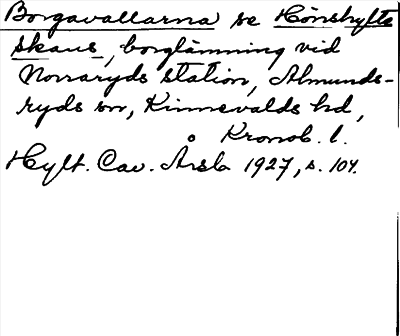 Borgavallarna se Hönshylte
skans, borglämning vid
Norraryds station, Almunds-
ryds sn, Kinnevalds hd,
Kronob. l.
Hylt. Cav. Årsb. 1927, s. 104.